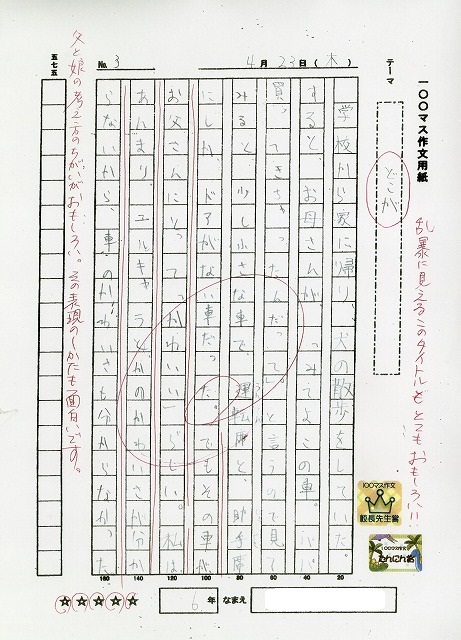 一〇〇マス作文用紙
乱暴に見えるこのタイトルもとてもおもしろい!!
テーマ
どこが
4月23日(木)
No. 3
学校から家に帰り、犬の散歩をしていた。
すると、お母さんが、
「みてよこの車。パパ
買ってきちゃったんだって。」と言うので見て
みると、少し小さな車で、運転席と、助手席
にしか、ドアがない車だった。でもその車が
お父さんにとって「かわいい」らしい。私は
あんまり、ユルキャラとかのかわいさが分か
らないから、車のかわいさも分からなかった。
20
40
60
80
100
120
140
160
五七五
父と娘の考え方のちがいがおもしろい。その表現のしかたも面白いです。
100マス作文
校長先生賞
100マス作文
たんにん名
6年 なまえ